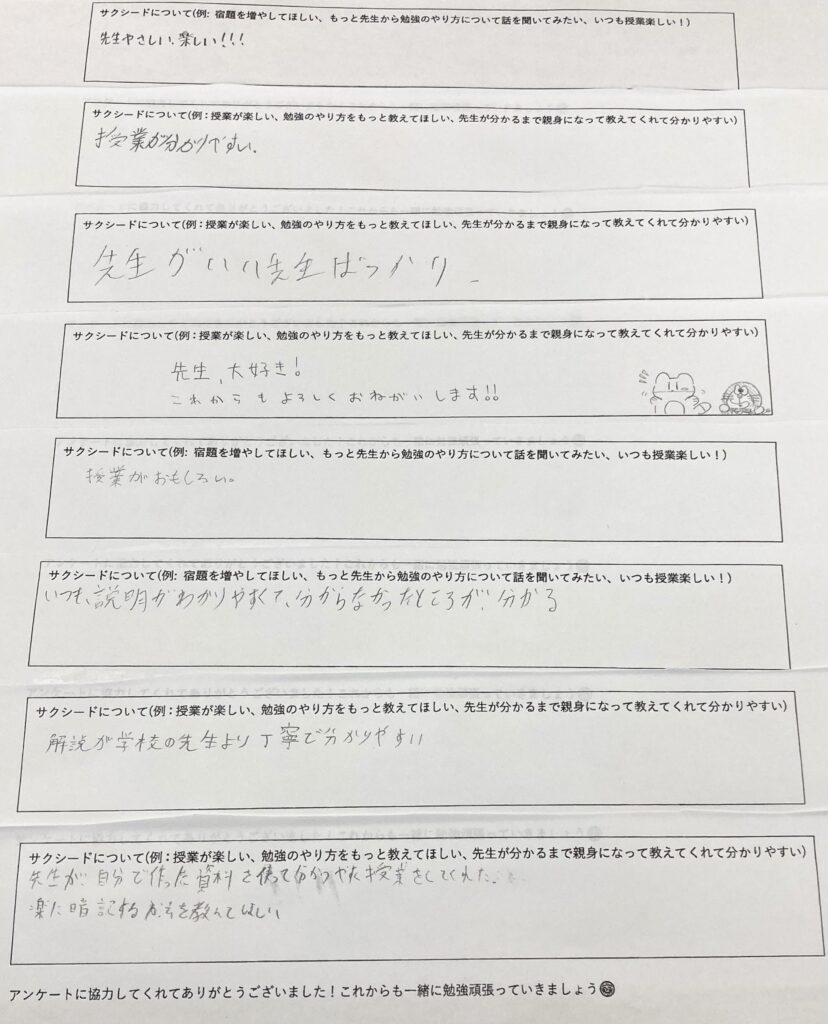 サクシードについて(例: 宿題を増やしてほしい、もっと先生から勉強のやり方について話を聞いてみたい、いつも授業楽しい！)
先生やさしい、楽しい!!!
サクシードについて(例：授業が楽しい、勉強のやり方をもっと教えてほしい、先生が分かるまで親身になって教えてくれて分かりやすい)
授業が分かりやすい。
サクシードについて(例：授業が楽しい、勉強のやり方をもっと教えてほしい、先生が分かるまで親身になって教えてくれて分かりやすい)
先生がいい先生ばっかり
サクシードについて(例：授業が楽しい、勉強のやり方をもっと教えてほしい、先生が分かるまで親身になって教えてくれて分かりやすい)
先生、大好き!
これからもよろしくおねがいします!!
サクシードについて(例: 宿題を増やしてほしい、もっと先生から勉強のやり方について話を聞いてみたい、いつも授業楽しい！)
授業がおもしろい。
サクシードについて(例: 宿題を増やしてほしい、もっと先生から勉強のやり方について話を聞いてみたい、いつも授業楽しい！)
いつも、説明がわかりやすくて、分からなかったところが、分かる
サクシードについて(例：授業が楽しい、勉強のやり方をもっと教えてほしい、先生が分かるまで親身になって教えてくれて分かりやすい)
解説が学校の先生より丁寧で分かりやすい
サクシードについて(例：授業が楽しい、勉強のやり方をもっと教えてほしい、先生が分かるまで親身になって教えてくれて分かりやすい)
先生が、自分で作った資料を使って授業をしてくれた。
楽に暗記する方法を教えてほしい
アンケートに協力してくれてありがとうございました！これからも一緒に勉強頑張っていきましょう